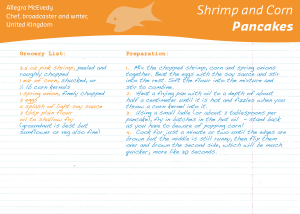 Allegra McEvedy
Chef, broadcaster and writer,
United Kingdom
Shrimp and Corn
Pancakes
Grocery List:
pink shrimp, peeled and
roughly chopped
1 ear of corn, shucked, or
½ cup corn kernels
1 spring onion, finely chopped
2 eggs
a splash of light soy sauce
2 tbsp plain flour
oil to shallow fry
(groundnut is best but
sunflower or veg also fine)
Preparation:
1. Mix the chopped shrimp, corn and spring onions
together. Beat the eggs with the soy sauce and stir
into the rest. Sift the flour into the mixture and
stir to combine.
2. Heat a frying pan with oil to a depth of about
half a centimeter until it is hot and fizzles when you
throw a corn kernel into it.
3. Using a small ladle (or about 2 tablespoons per
pancake), fry in batches in the hot oil – stand back
as you have to beware of popping corn!
4. Cook for just a minute or two until the edges are
brown but the middle is still runny, then flip them
over and brown the second side, which will be much
quicker, more like 30 seconds.